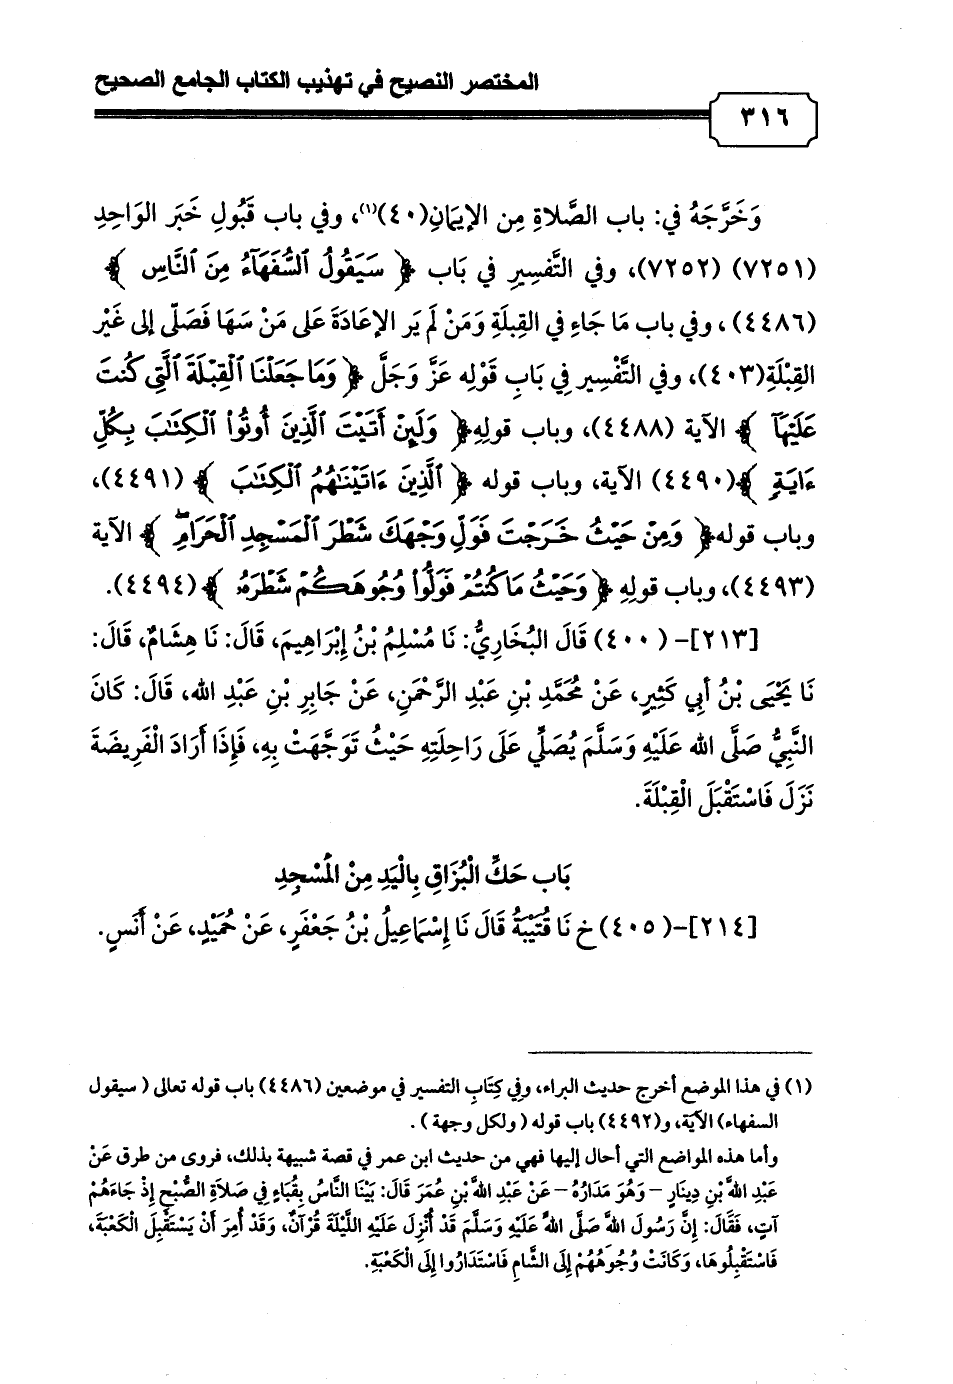 المختصر النصيح في تهذيب الكتاب الجامع الصحيح
٣١٦
وَخَرَّجَهُ في: باب الصَّلاةِ مِن الإيمَانِ(٤٠)(١)، وفي باب قَبُولِ خَبَر الوَاحِدِ
(٧٢٥١) (٧٢٥٢)، وفي التَّفْسِيرِ في بَاب ﴿ سَيَقُولُ ٱلسُّفَهَآءُ مِنَ ٱلنَّاسِ ﴾
(٤٤٨٦) ، وفي باب مَا جَاءِ في القِبلَةِ وَمَنْ لَم يَر الإعَادَةَ عَلى مَنْ سَهَا فَصَلّى إلى غَيْر
القِبْلَةِ(٤٠٣)، وفي التَّفْسِير فِي بَابِ قَوْلِه عَزَّ وَجَلَّ ﴿ وَمَا جَعَلْنَا ٱلْقِبْلَةَ ٱلَّتِي كُنتَ
عَلَيْهَآ ﴾ الآية (٤٤٨٨)، وباب قولِهِ﴿ وَلَئِنْ أَتَيْتَ ٱلَّذِينَ أُوتُوا۟ ٱلْكِتَٰبَ بِكُلِّ
ءَايَةٍ ﴾(٤٤٩٠) الآية، وباب قوله ﴿ ٱلَّذِينَ ءَاتَيْنَٰهُمُ ٱلْكِتَٰبَ ﴾ (٤٤٩١)،
وباب قوله﴿ وَمِنْ حَيْثُ خَرَجْتَ فَوَلِّ وَجْهَكَ شَطْرَ ٱلْمَسْجِدِ ٱلْحَرَامِ ۖ ﴾ الآية
(٤٤٩٣)، وباب قولِهِ ﴿ وَحَيْثُ مَا كُنتُمْ فَوَلُّوا۟ وُجُوهَكُمْ شَطْرَهُۥ ﴾(٤٤٩٤).
[٢١٣]- (٤٠٠) قَالَ البُخَارِيُّ: نَا مُسْلِمُ بْنُ إِبْرَاهِيمَ، قَالَ: نَا هِشَامٌ، قَالَ:
نَا يَحْيَى بْنُ أبي كَثِيرٍ، عَنْ مُحَمَّدِ بْنِ عَبْدِ الرَّحْمَنِ، عَنْ جَابِرِ بْنِ عَبْدِ الله، قَالَ: كَانَ
النَّبِيُّ صَلَّى الله عَلَيْهِ وَسَلَّمَ يُصَلِّي عَلَى رَاحِلَتِهِ حَيْثُ تَوَجَّهَتْ بِهِ، فَإِذَا أَرَادَ الْفَرِيضَةَ
نَزَلَ فَاسْتَقْبَلَ الْقِبْلَةَ.
بَاب حَكِّ الْبُزَاقِ بِالْيَدِ مِنْ الْمَسْجِدِ
[٢١٤]-(٤٠٥) خ نَا قُتَيْبَةُ قَالَ نَا إِسْمَاعِيلُ بْنُ جَعْفَرٍ، عَنْ حُمَيْدٍ، عَنْ أَنَسٍ.
(١) في هذا الموضع أخرج حديث البراء، وفي كِتَابِ التفسير في موضعين (٤٤٨٦) باب قوله تعالى ( سيقول
السفهاء) الآية، و(٤٤٩٢) باب قوله ( ولكل وجهة ) .
وأما هذه المواضع التي أحال إليها فهي من حديث ابن عمر في قصة شبيهة بذلك، فروى من طرق عَنْ
عَبْدِ اللهِ بْنِ دِينَارٍ – وَهُوَ مَدَارُهُ – عَنْ عَبْدِ اللهِ بْنِ عُمَرَ قَالَ: بَيْنَا النَّاسُ بِقُبَاءٍ فِي صَلَاةِ الصُّبْحِ إِذْ جَاءَهُمْ
آتٍ، فَقَالَ: إِنَّ رَسُولَ اللهِ صَلَّى اللهُ عَلَيْهِ وَسَلَّمَ قَدْ أُنْزِلَ عَلَيْهِ اللَّيْلَةَ قُرْآنٌ، وَقَدْ أُمِرَ أَنْ يَسْتَقْبِلَ الْكَعْبَةَ،
فَاسْتَقْبِلُوهَا، وَكَانَتْ وُجُوهُهُمْ إِلَى الشَّامِ فَاسْتَدَارُوا إِلَى الْكَعْبَةِ.